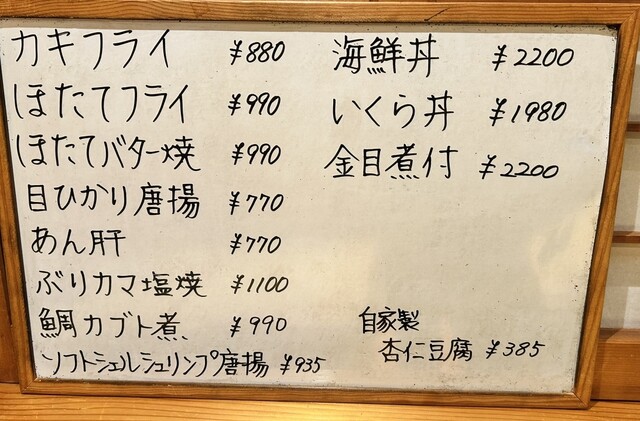 カキフライ ¥880
ほたてフライ ¥990
ほたてバター焼 ¥990
目ひかり唐揚 ¥770
あん肝 ¥770
ぶりカマ塩焼 ¥1100
鯛カブト煮 ¥990
ソフトシェルシュリンプ唐揚 ¥935
海鮮丼 ¥2200
いくら丼 ¥1980
金目煮付 ¥2200
自家製
杏仁豆腐 ¥385